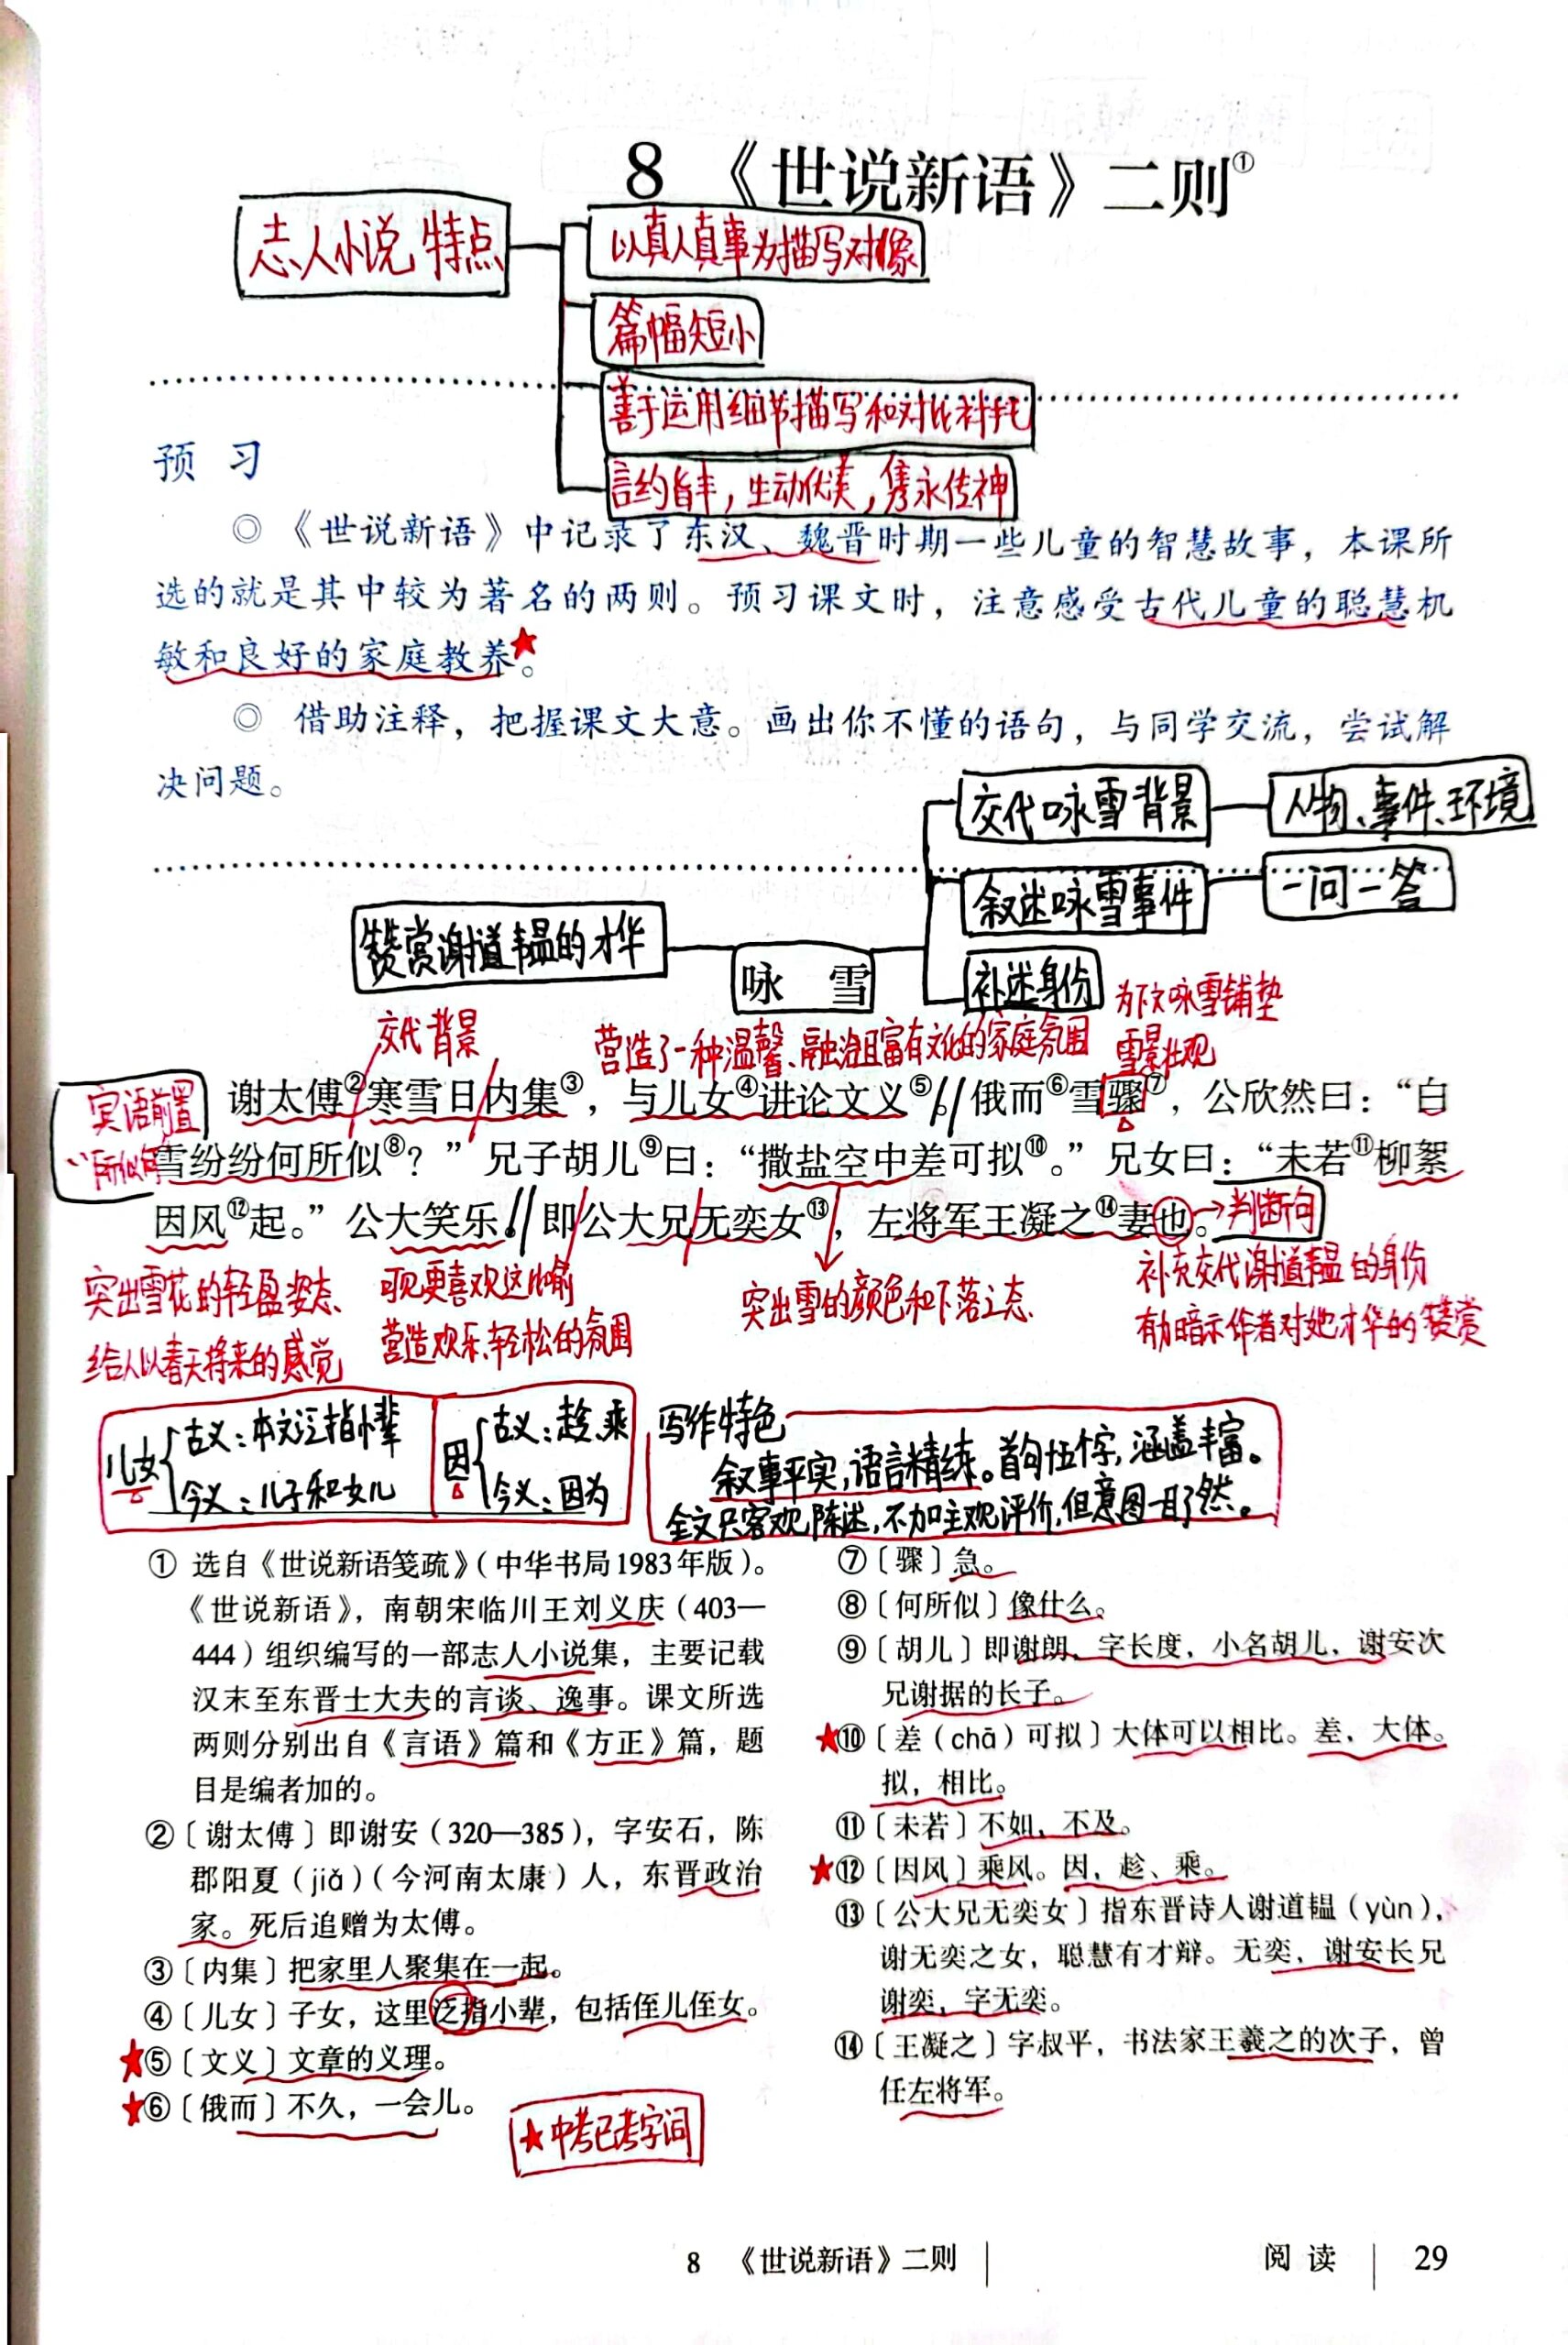 8 《世说新语》二则①
志人小说特点
以真人真事为描写对像
篇幅短小
善于运用细节描写和对比衬托
言约旨丰，生动优美，隽永传神
预 习
◎《世说新语》中记录了东汉、魏晋时期一些儿童的智慧故事，本课所
选的就是其中较为著名的两则。预习课文时，注意感受古代儿童的聪慧机
敏和良好的家庭教养★。
◎ 借助注释，把握课文大意。画出你不懂的语句，与同学交流，尝试解
决问题。
交代咏雪背景
人物、事件、环境
叙述咏雪事件
一问一答
赞赏谢道韫的才华
咏 雪
补述身份
为下文咏雪铺垫
雪景壮观
交代背景
营造了一种温馨、融洽且富有文化的家庭氛围
宾语前置
“所似何
谢太傅②寒雪日内集③，与儿女④讲论文义⑤。俄而⑥雪骤⑦，公欣然曰：“白
雪纷纷何所似⑧？”兄子胡儿⑨曰：“撒盐空中差可拟⑩。”兄女曰：“未若⑪柳絮
因风⑫起。”公大笑乐。即公大兄无奕女⑬，左将军王凝之⑭妻也。→判断句
突出雪花的轻盈姿态、
给人以春天将来的感觉
可见更喜欢这比喻
营造欢乐、轻松的氛围
突出雪的颜色和下落之态
补充交代谢道韫的身份
有力暗示作者对她才华的赞赏
儿女
古义：本文泛指小辈
今义：儿子和女儿
因
古义：趁、乘
今义：因为
写作特色
叙事平实，语言精练。首句十五个字，涵盖丰富。
全文只客观陈述，不加主观评价，但意图一目了然。
① 选自《世说新语笺疏》（中华书局1983年版）。
《世说新语》，南朝宋临川王刘义庆（403—
444）组织编写的一部志人小说集，主要记载
汉末至东晋士大夫的言谈、逸事。课文所选
两则分别出自《言语》篇和《方正》篇，题
目是编者加的。
②〔谢太傅〕即谢安（320—385），字安石，陈
郡阳夏（jiǎ）（今河南太康）人，东晋政治
家。死后追赠为太傅。
③〔内集〕把家里人聚集在一起。
④〔儿女〕子女，这里泛指小辈，包括侄儿侄女。
★⑤〔文义〕文章的义理。
★⑥〔俄而〕不久，一会儿。
⑦〔骤〕急。
⑧〔何所似〕像什么。
⑨〔胡儿〕即谢朗，字长度，小名胡儿，谢安次
兄谢据的长子。
★⑩〔差（chā）可拟〕大体可以相比。差，大体。
拟，相比。
⑪〔未若〕不如，不及。
★⑫〔因风〕乘风。因，趁、乘。
⑬〔公大兄无奕女〕指东晋诗人谢道韫（yùn），
谢无奕之女，聪慧有才辩。无奕，谢安长兄
谢奕，字无奕。
⑭〔王凝之〕字叔平，书法家王羲之的次子，曾
任左将军。
★中考已考字词
8 《世说新语》二则
阅 读 29